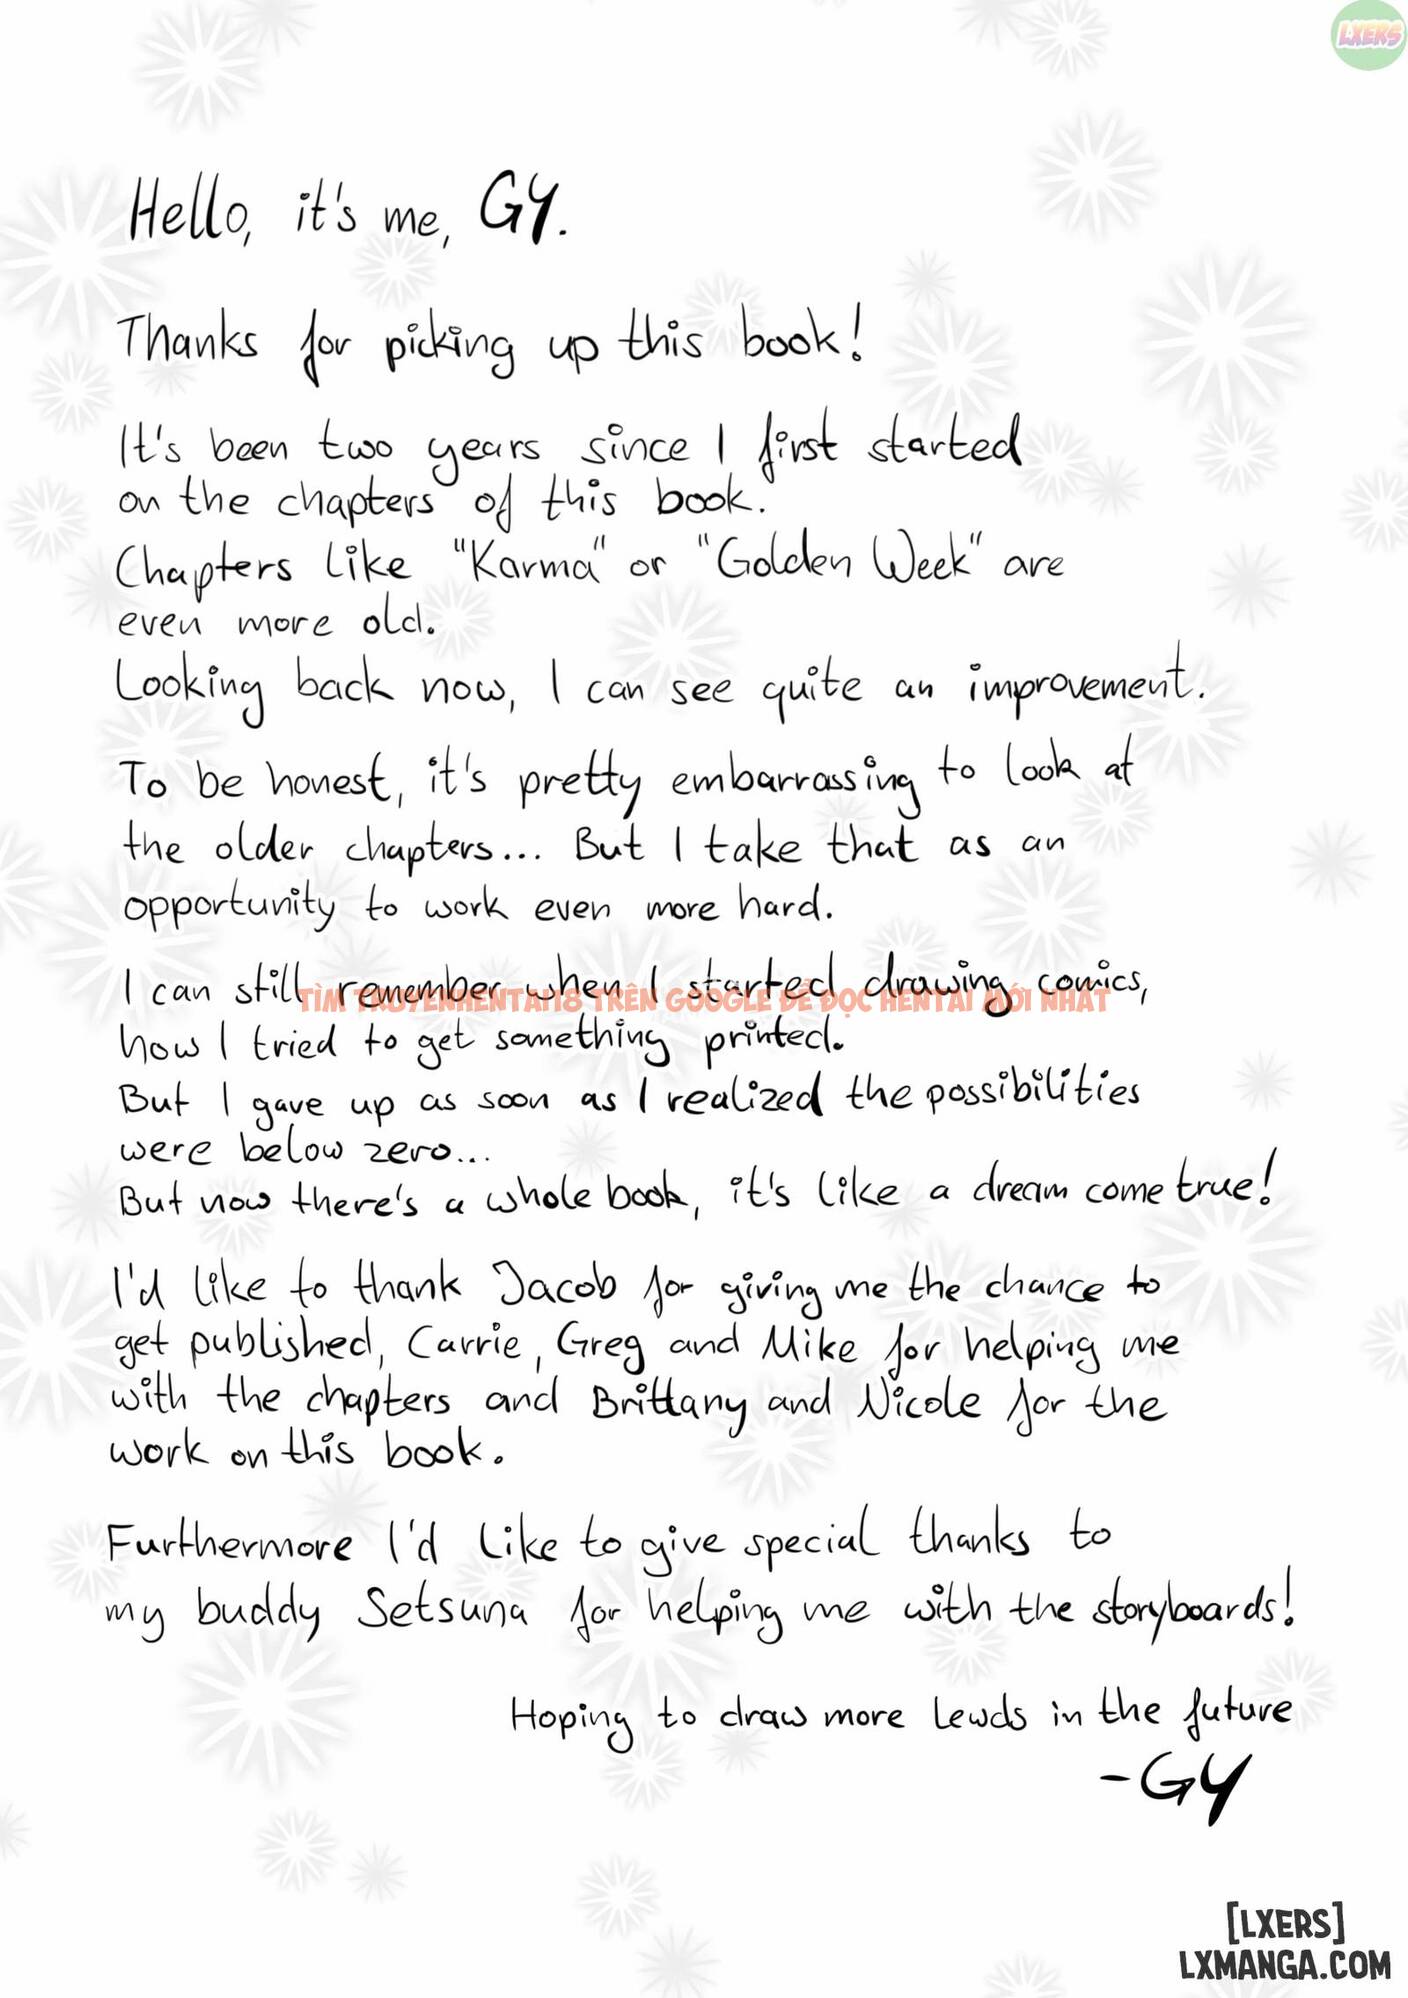 LXERS
Hello, it's me, GY.
Thanks for picking up this book!
It's been two years since I first started
on the chapters of this book.
Chapters like "Karma" or "Golden Week" are
even more old.
Looking back now, I can see quite an improvement.
To be honest, it's pretty embarrassing to look at
the older chapters... But I take that as an
opportunity to work even more hard.
I can still remember when I started drawing comics,
TÌM TRUYENHENTAI18 TRÊN GOOGLE ĐỂ ĐỌC HENTAI MỚI NHẤT
how I tried to get something printed.
But I gave up as soon as I realized the possibilities
were below zero...
But now there's a whole book, it's like a dream come true!
I'd like to thank Jacob for giving me the chance to
get published, Carrie, Greg and Mike for helping me
with the chapters and Brittany and Nicole for the
work on this book.
Furthermore I'd like to give special thanks to
my buddy Setsuna for helping me with the storyboards!
Hoping to draw more lewds in the future
-GY
[LXERS]
LXMANGA.COM